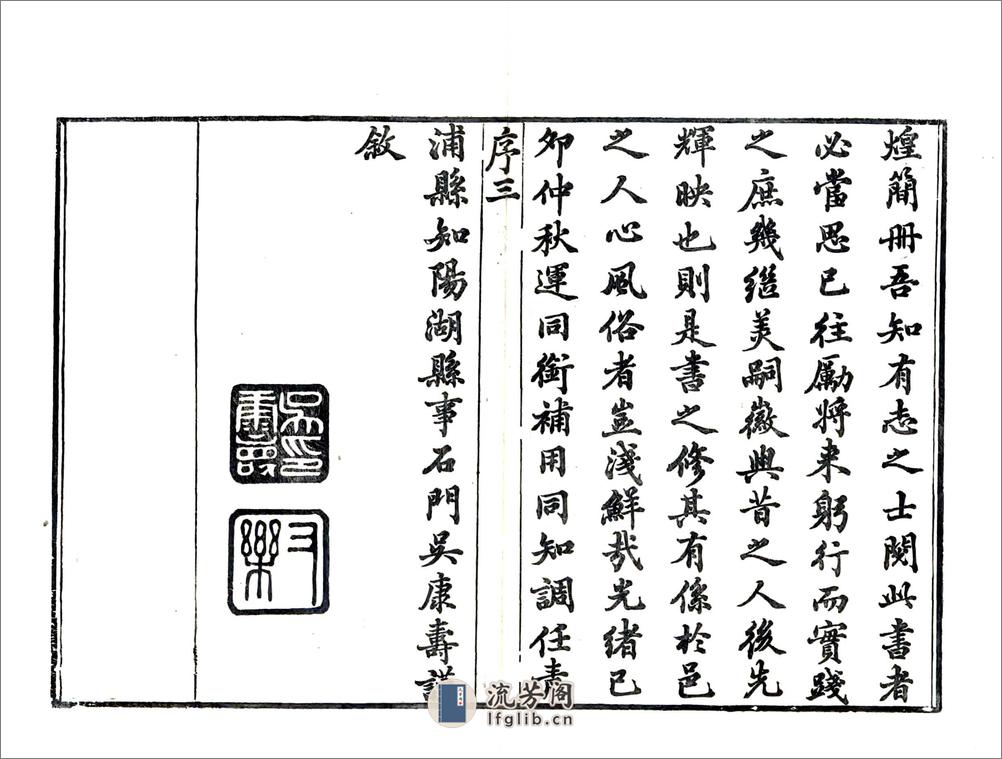 煌簡冊吾知有志之士閱此書者
必當思已往勵將来躬行而實踐
之庶幾繼美嗣徽與昔之人後先
輝映也則是書之修其有係於邑
之人心風俗者豈淺鮮哉光緒己
卯仲秋運同銜補用同知調任青
序三
浦縣知陽湖縣事石門吳康壽謹
敘
吳康壽印
又樂
流芳阁
lfglib.cn